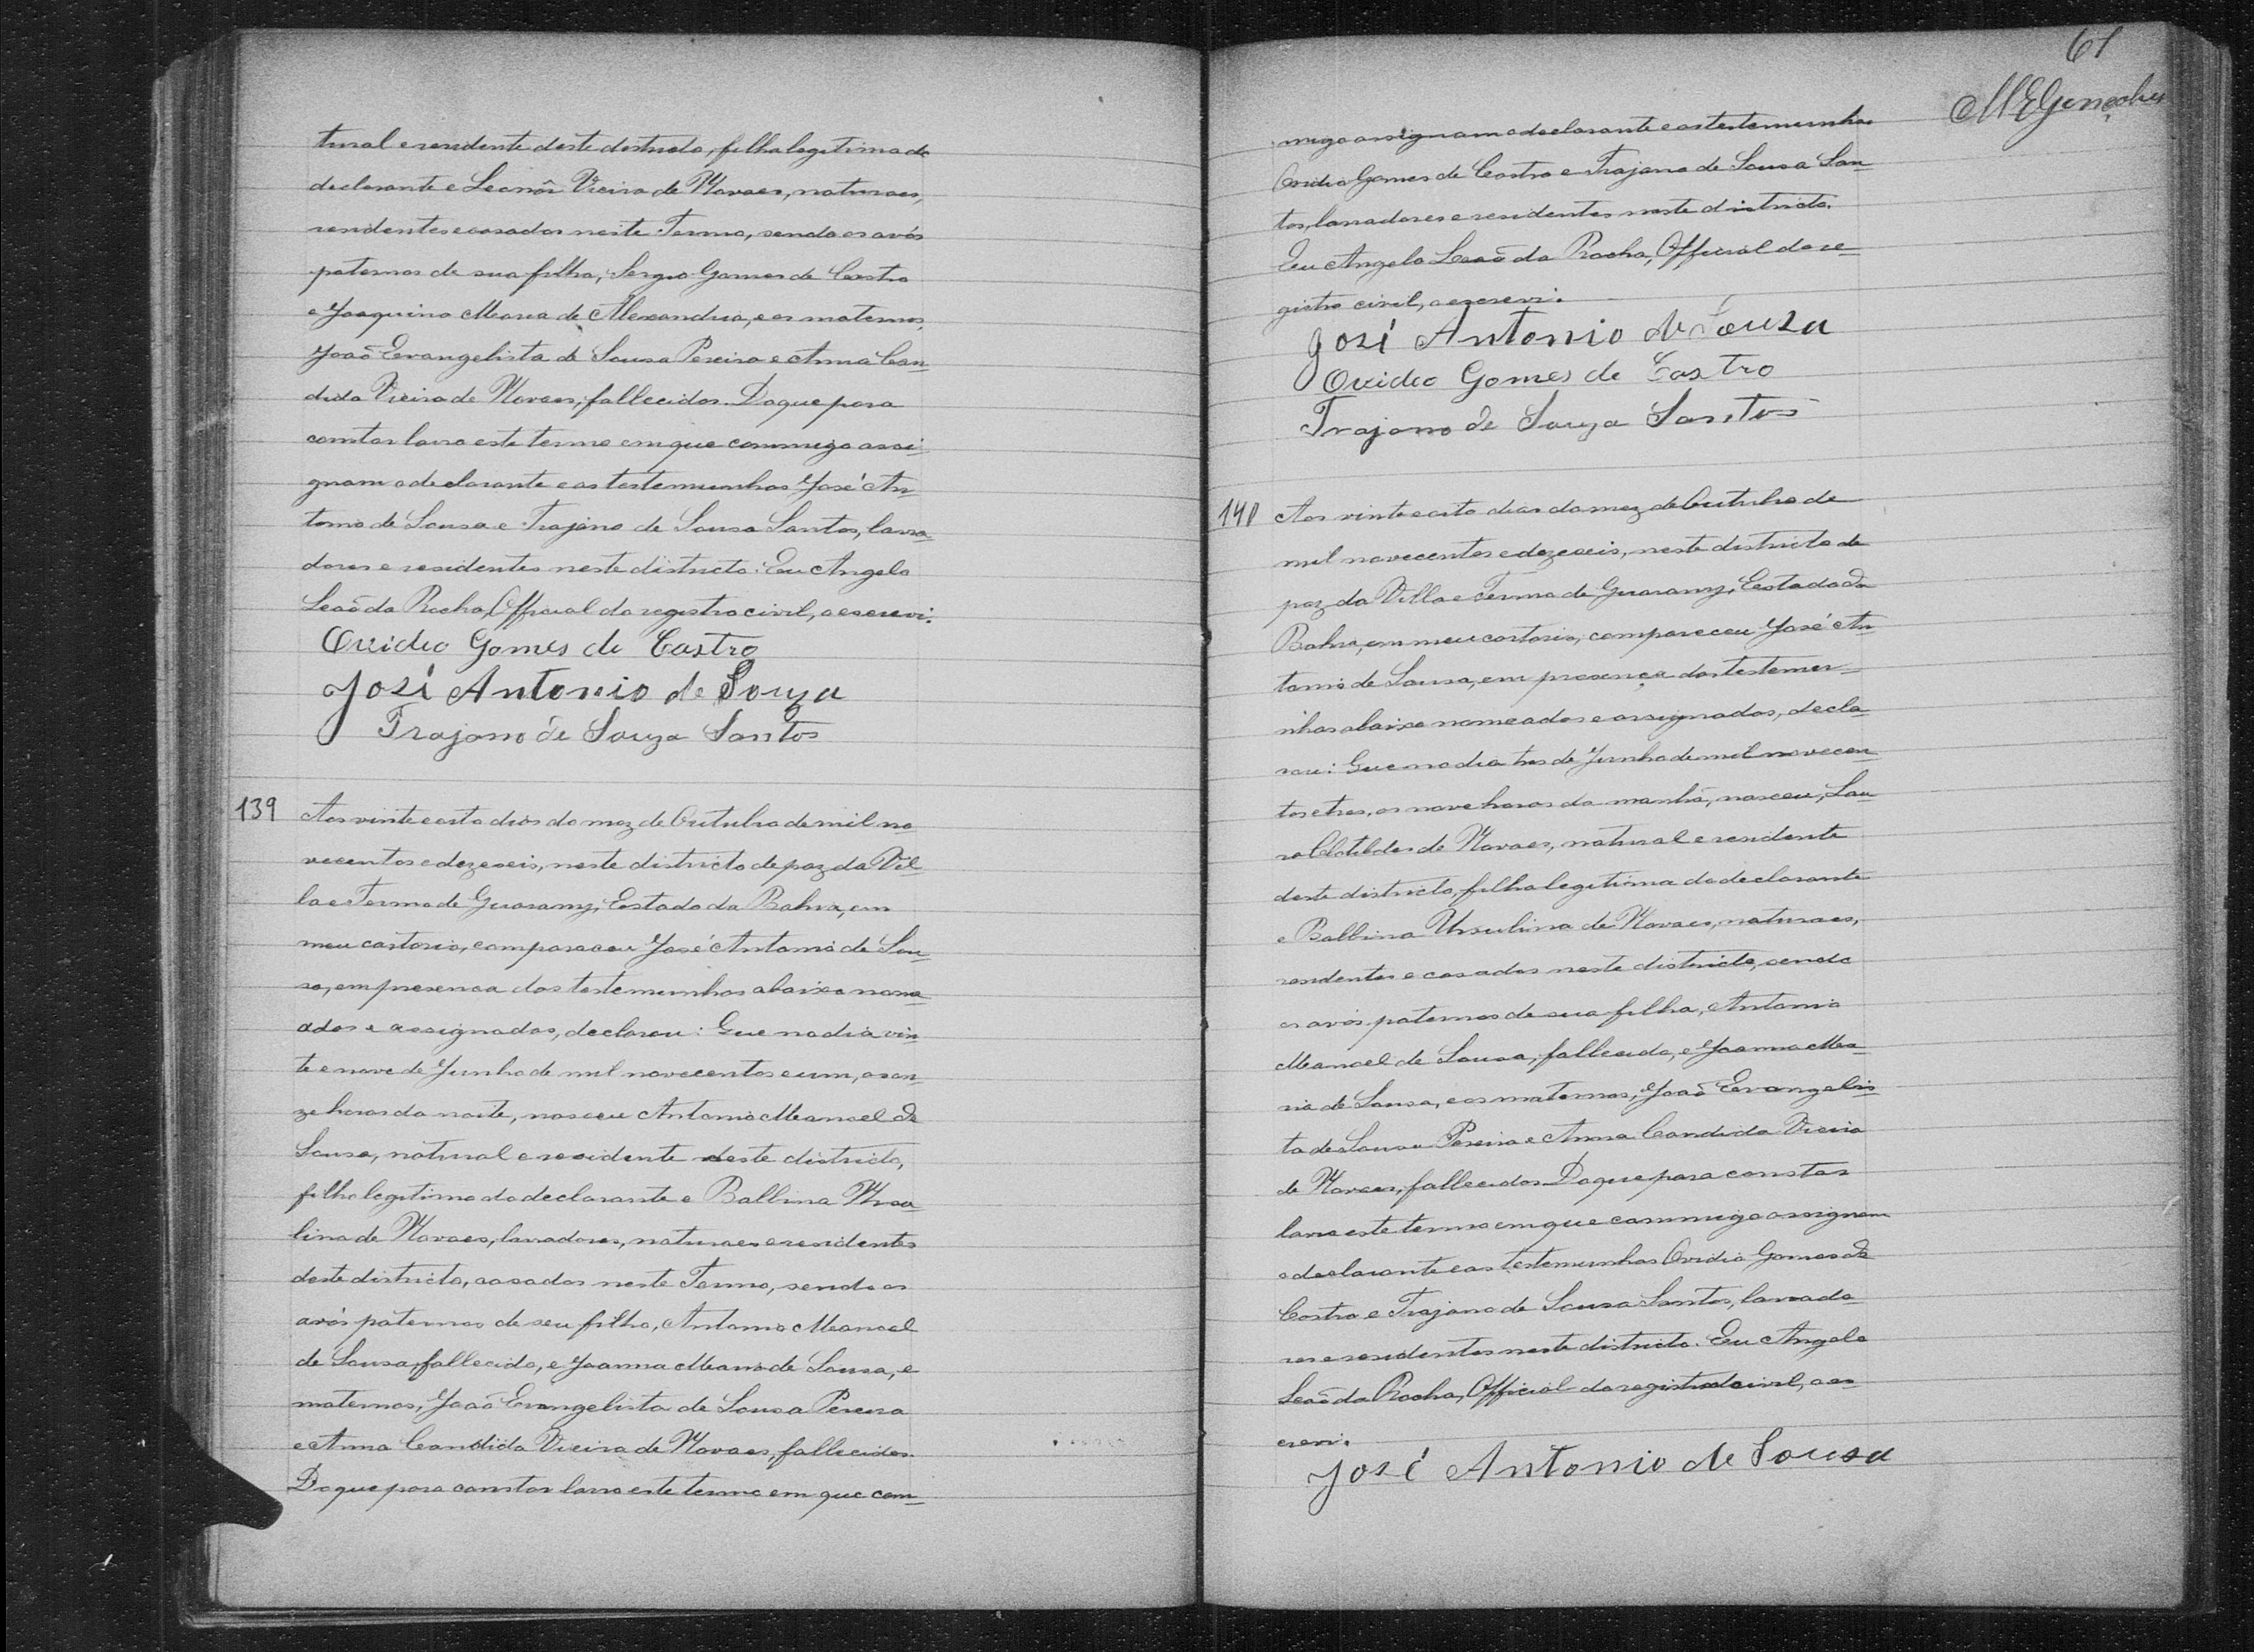 tural e residente deste districto, filha legitima do
declarante e Leonôr Vieira de Novaes, naturaes,
residentes e casados neste Termo, sendo os avós
paternos de sua filha, Sergio Gomes de Castro
e Joaquina Maria de Alexandria, e os maternos,
João Evangelista de Sousa Pereira e Anna Can-
dida Vieira de Novaes, fallecidos. Do que para
constar lavro este termo em que commigo assi-
gnam o declarante e as testemunhas José An-
tonio de Sousa e Trajano de Sousa Santos, lavra-
dores e residentes neste districto. Eu Angelo
Leão da Rocha, Official do registro civil, o escrevi.
Ovidio Gomes de Castro
José Antonio de Souza
Trajano de Souza Santos
139 Aos vinte e oito dias do mez de Outubro de mil no
vecentos e dezeseis, neste districto de paz da Vil-
la e Termo de Guarany, Estado da Bahia, em
meu cartorio, compareceu José Antonio de Sou-
sa, em presença das testemunhas abaixo nome
adas e assignadas, declarou: Que no dia vin-
te e nove de Junho de mil novecentos e um, as on-
ze horas da noite, nasceu Antonio Manoel de
Sousa, natural e residente deste districto,
filho legitimo do declarante e Balbina Ursu-
lina de Novaes, lavradores, naturaes e residentes
deste districto, casados neste Termo, sendo os
avós paternos de seu filho, Antonio Manoel
de Sousa, fallecido, e Joanna Maria de Sousa, e
maternos, João Evangelista de Sousa Pereira
e Anna Candida Vieira de Novaes, fallecidos.
Do que para constar lavro este termo em que com-
61
MEGonçalves
migo assignam o declarante e as testemunhas
Ovidio Gomes de Castro e Trajano de Sousa San-
tos, lavradores e residentes neste districto.
Eu Angelo Leão da Rocha, Official do re-
gistro civil, o escrevi.
José Antonio de Souza
Ovidio Gomes de Castro
Trajano de Souza Santos
140 Aos vinte e oito dias do mez de Outubro de
mil novecentos e dezeseis, neste districto de
paz da Villa e Termo de Guarany, Estado da
Bahia, em meu cartorio, compareceu José An-
tonio de Sousa, em presença das testemu-
nhas abaixo nomeadas e assignadas, decla-
rou: Que no dia tres de Junho de mil novecen-
tos e tres, as nove horas da manhã, nasceu, Lau-
ra Clotildes de Novaes, natural e residente
deste districto, filha legitima do declarante
e Balbina Ursulina de Novaes, naturaes,
residentes e casados neste districto, sendo
os avós paternos de sua filha, Antonio
Manoel de Sousa, fallecido, e Joanna Ma-
ria de Sousa, e os maternos, João Evangelis-
ta de Sousa Pereira e Anna Candida Vieira
de Novaes, fallecidos. Do que para constar
lavro este termo em que commigo assignam
o declarante e as testemunhas Ovidio Gomes de
Castro e Trajano de Sousa Santos, lavrado-
res e residentes neste districto. Eu Angelo
Leão da Rocha, Official do registro civil, o es-
crevi.
José Antonio de Sousa